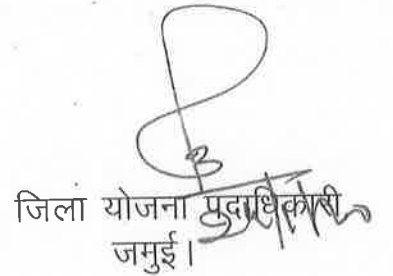 जिला योजना पदाधिकारी
जमुई।